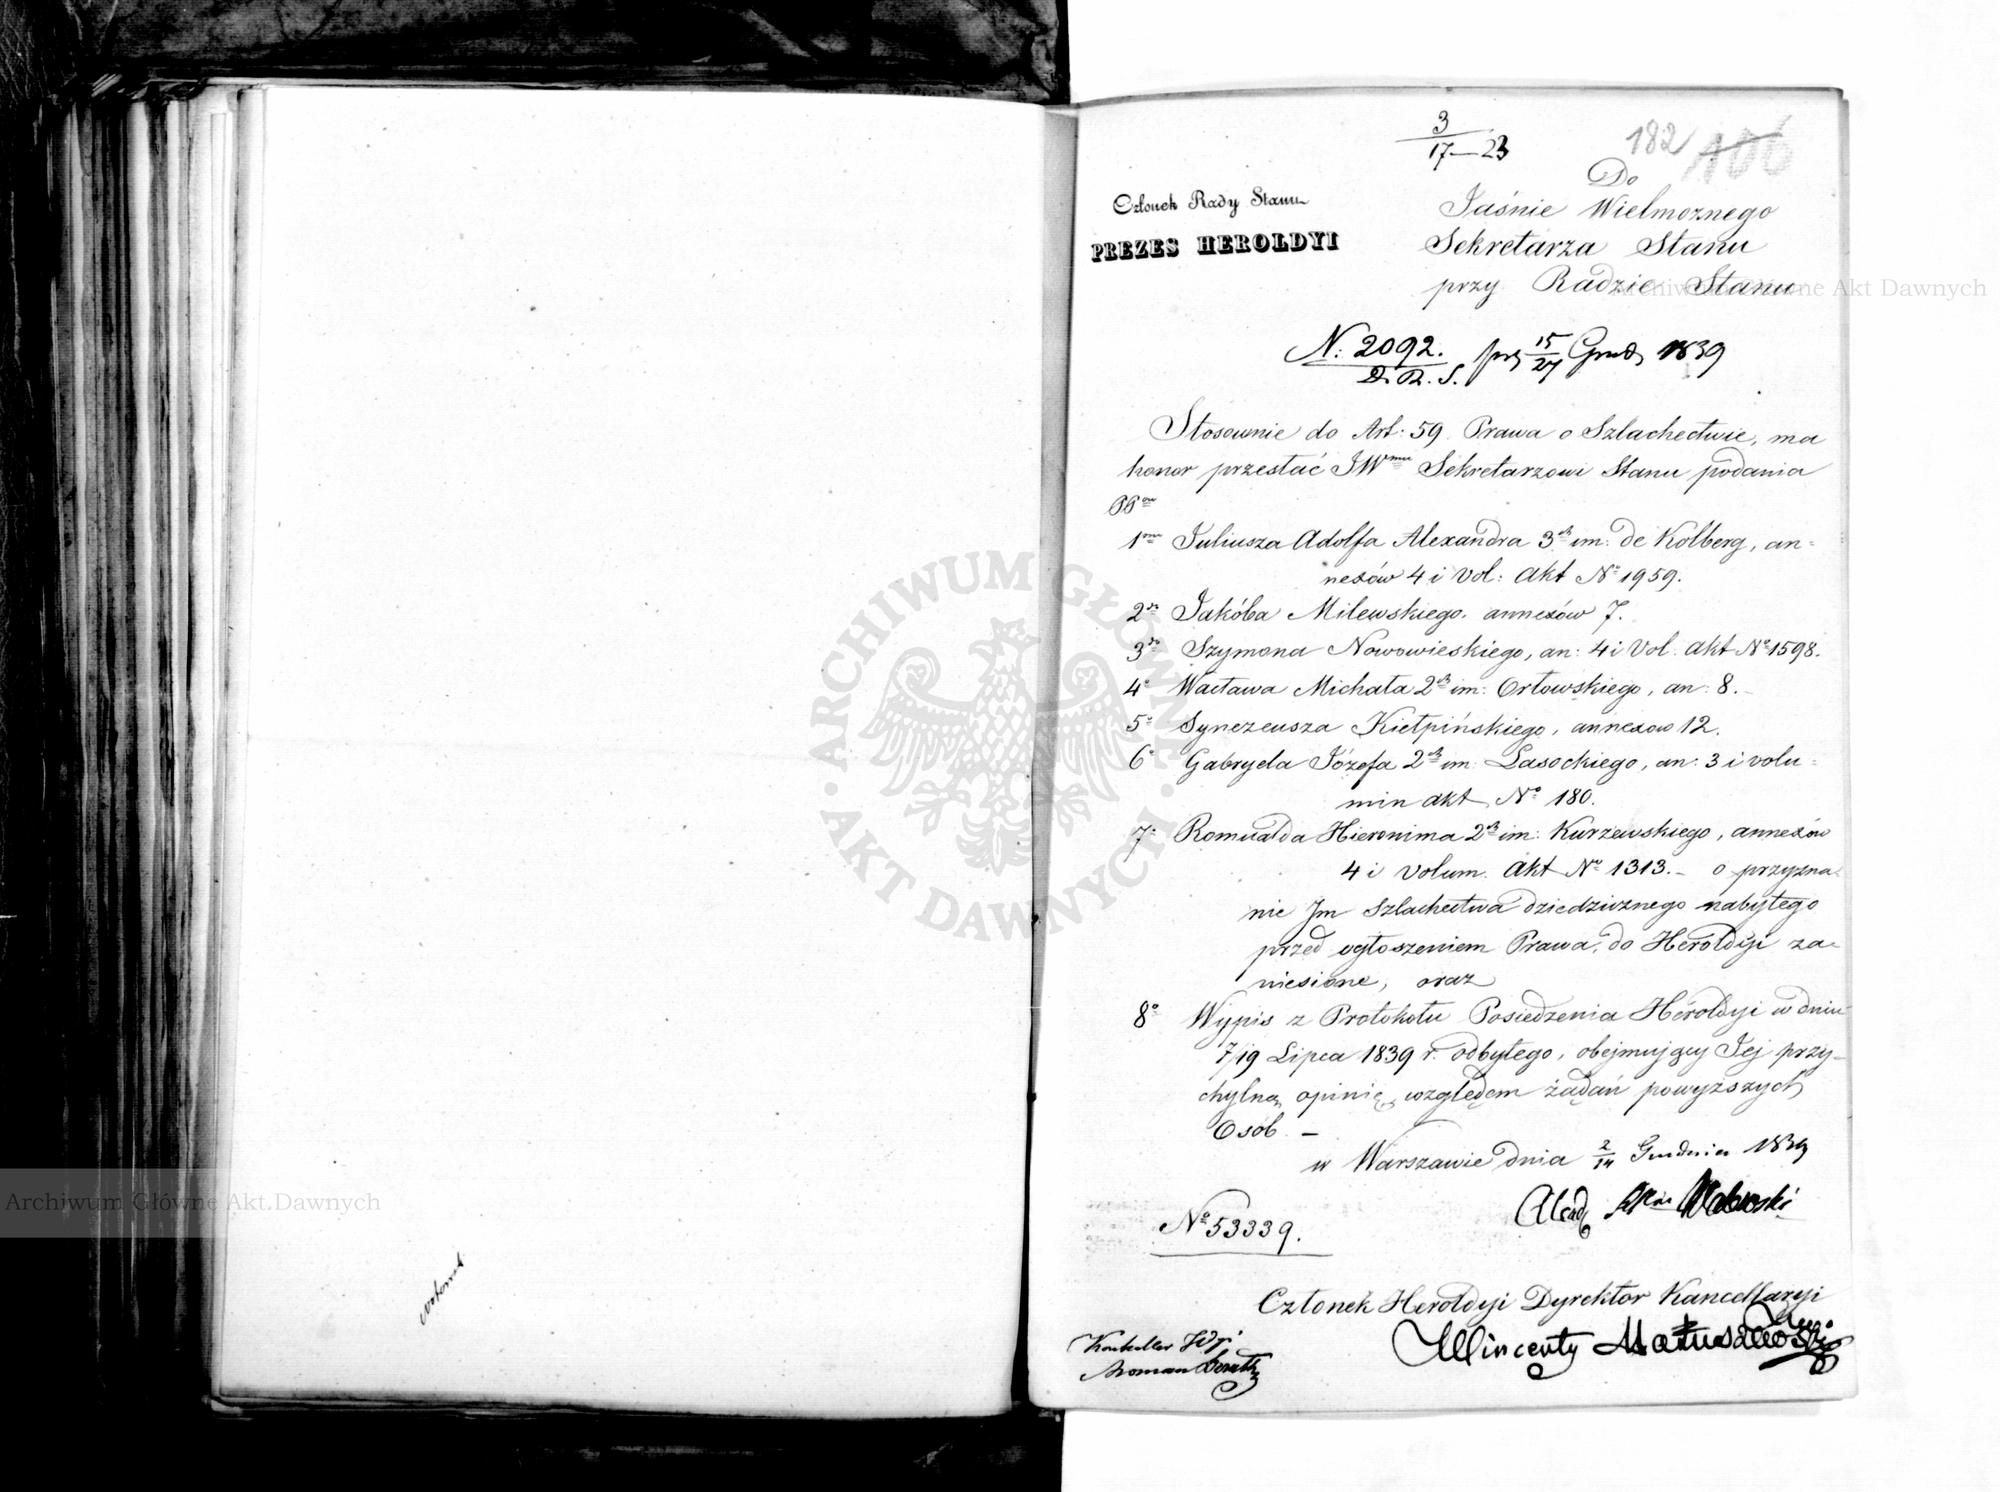 3
17—23
182 106
Członek Rady Stanu
PREZES HEROLDYI
Do
Jaśnie Wielmożnego
Sekretarza Stanu
przy Radzie Stanu
N: 2092.
D. R. S.
15/27 Grud 1839
Stosownie do Art: 59 Prawa o Szlachectwie, ma
honor przesłać JWmu Sekretarzowi Stanu podania
PPow
1mo Juliusza Adolfa Alexandra 3ch im: de Kolberg, an=
nexów 4 i Vol: Akt No 1959.
2do Jakóba Milewskiego, annexów 7.
3o Szymona Nowowieskiego, an: 4 i Vol. Akt No 1598.
4o Wacława Michała 2ch im: Orłowskiego, an: 8.
5o Synezeusza Kiełpińskiego, annexow 12.
6o Gabryela Józefa 2ch im: Lasockiego, an: 3 i volu=
min akt No 180.
7o Romualda Hieronima 2ch im: Kurzewskiego, annexów
4 i volum. Akt No 1313. – o przyzna=
nie Im Szlachectwa dziedzicznego nabytego
przed ogłoszeniem Prawa, do Heroldyi za=
niesione, oraz
8o Wypis z Protokołu Posiedzenia Heroldyi w dniu
7/19 Lipca 1839 r. odbytego, obejmujący Jej przy=
chylną opinię, względem żądań powyższych
Osób. –
w Warszawie dnia 2/14 Grudnia 1839
No 53339.
Członek Heroldyi Dyrektor Kancellaryi
Wincenty Matuszewski
Roman
Archiwum Główne Akt Dawnych
Archiwum Główne Akt Dawnych
ARCHIWUM GŁÓWNE · AKT DAWNYCH ·